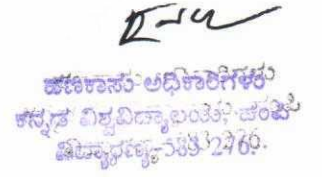 ಹಣಕಾಸು ಅಧಿಕಾರಿಗಳು
ಕನ್ನಡ ವಿಶ್ವವಿದ್ಯಾಲಯ, ಹಂಪಿ
ವಿದ್ಯಾರಣ್ಯ-583 276.